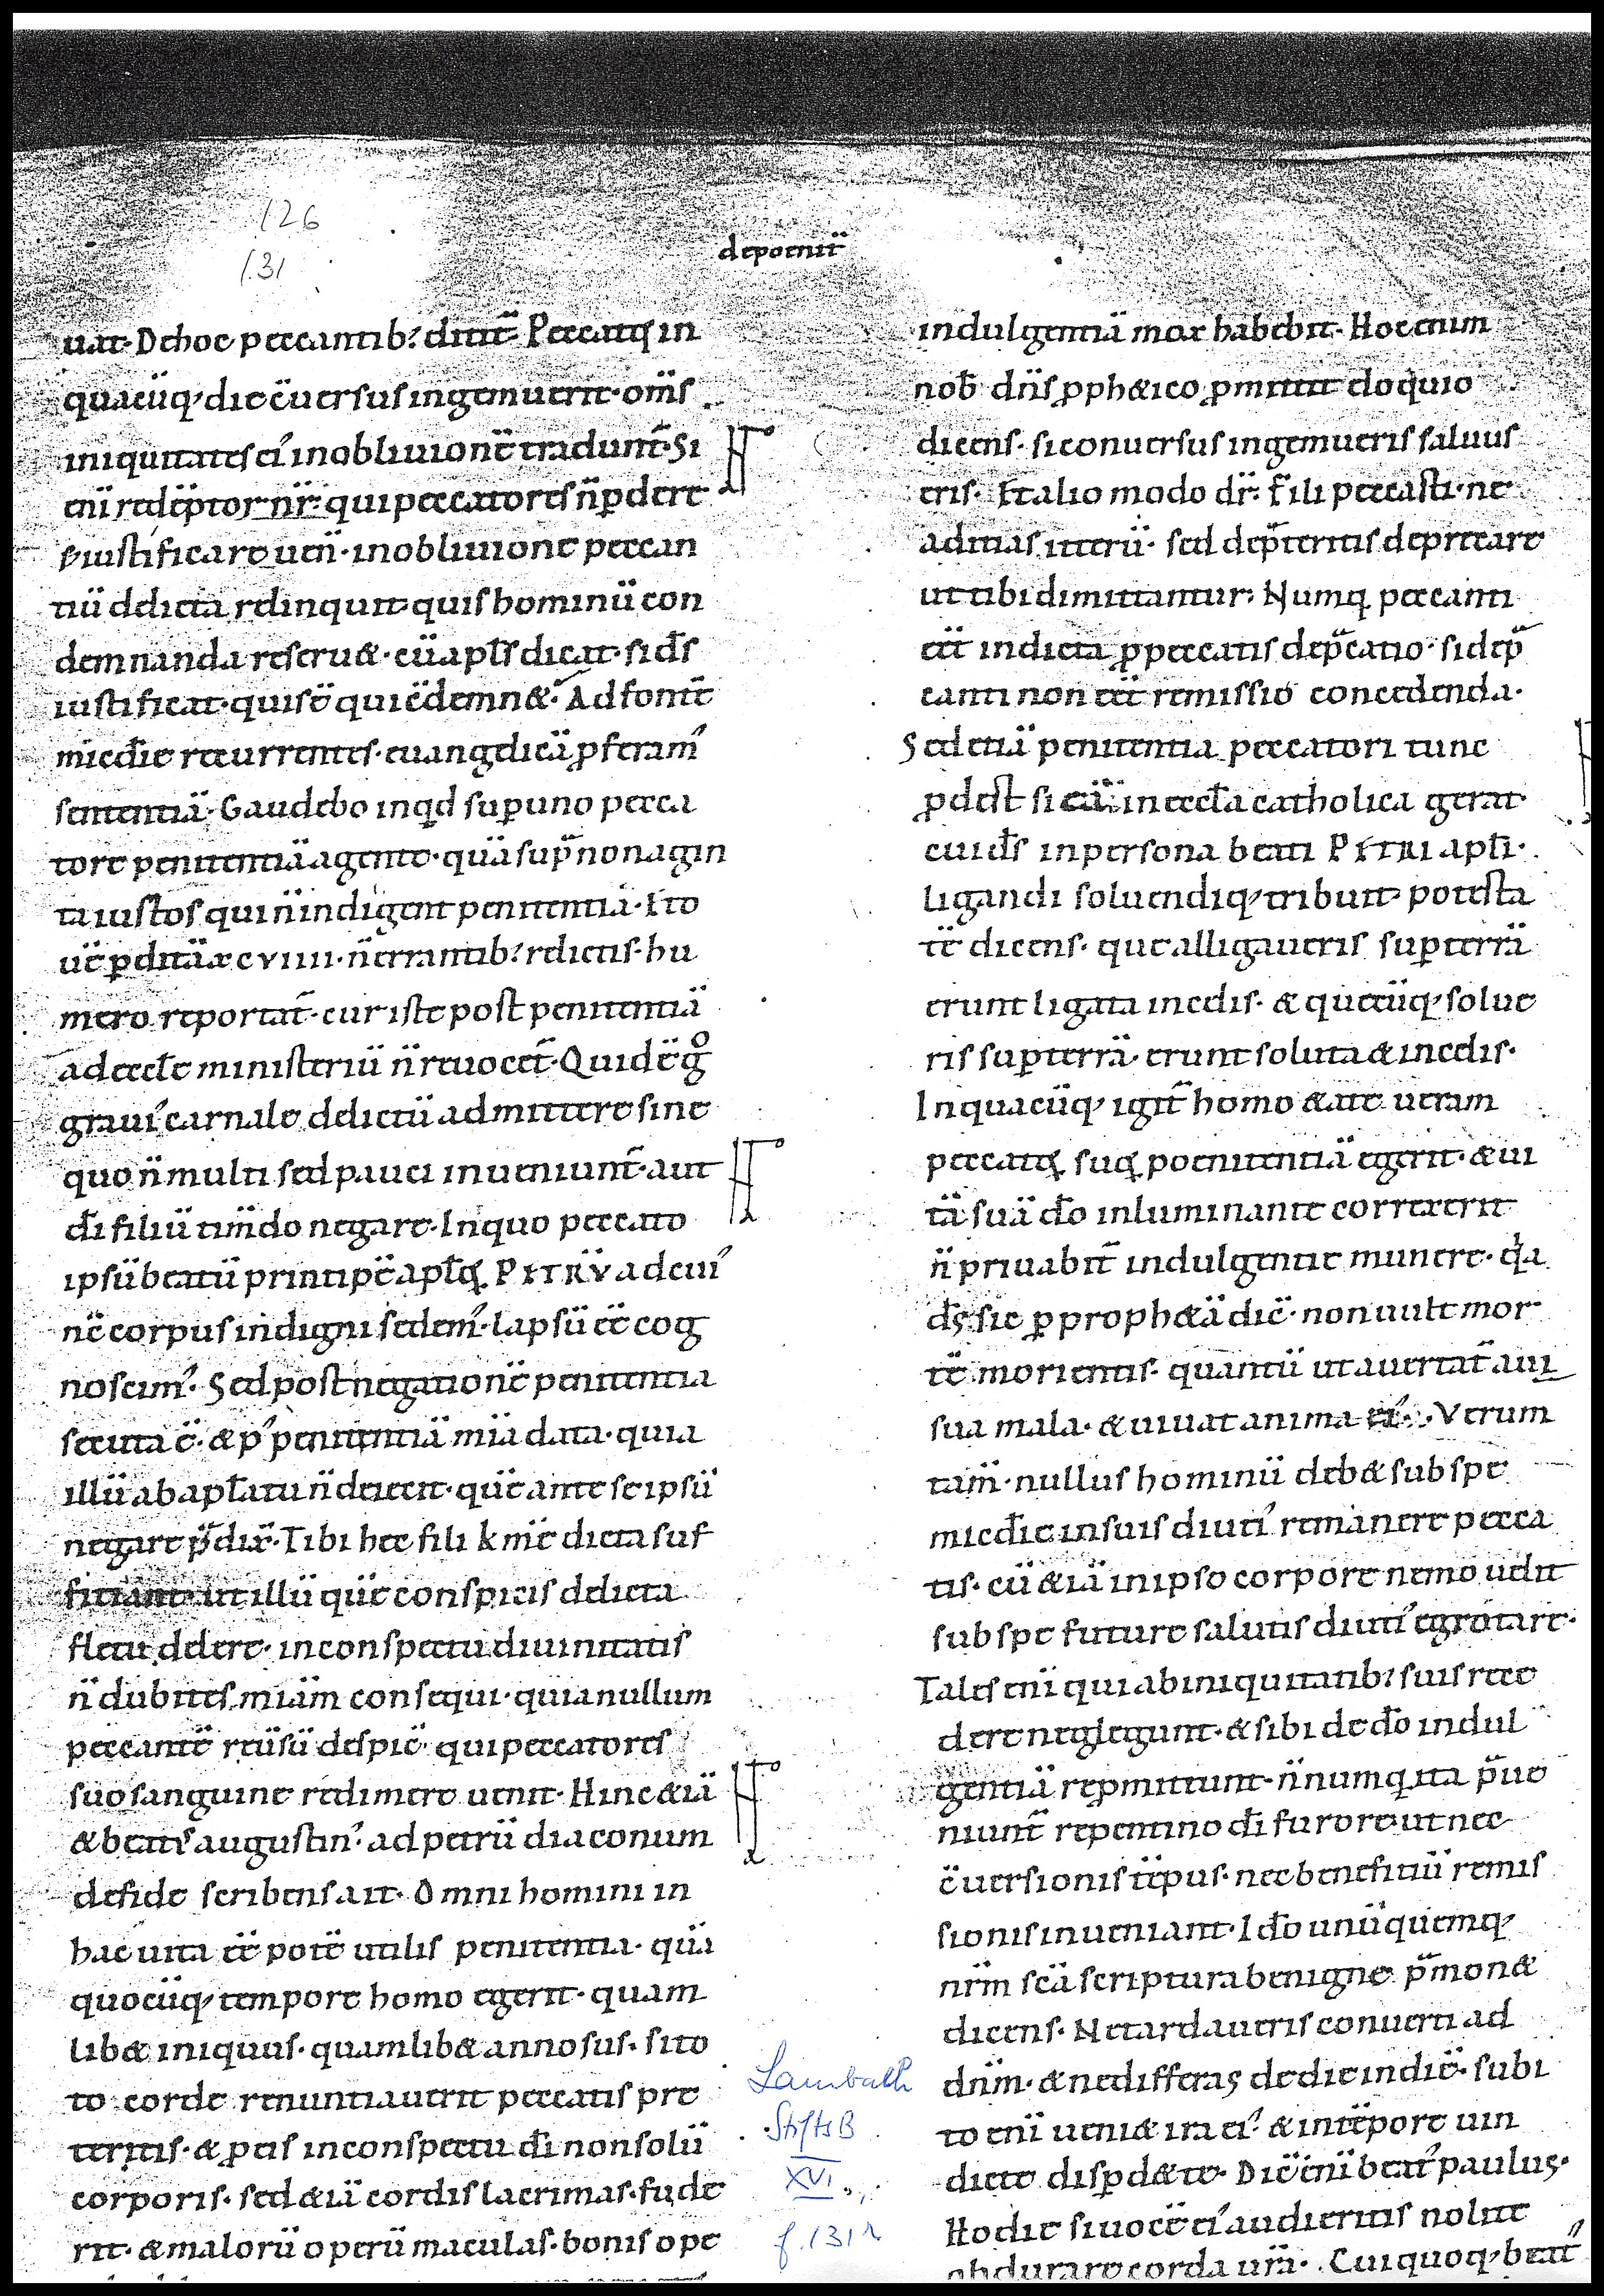 126
131
depoenit̄
uat· Dehoc peccantib; dicit̄· Peccatoꝝ in
quacūq; die c̄uersus ingemuerit· om̄s
iniquitates ei' inobliuionē tradunt̄· Si
eni redēptor nr̄· qui peccatores n̄ ꝑdere
iustificare uen̄· inobliuione peccan
tiū delicta relinquit· quis hominū con
demnanda reseruet· cū apl̄s dicat· si d̄s
iustificat· quis ē qui c̄demn&· Ad fontē
mic̄die recurrentes· euangelicā ꝓferam'
sententiā· Gaudebo inq̄d suꝑ uno pecca
tore penitentiā agente· quā sup̄ nonagin
ta iustos qui n̄ indigent penitentiā· Ito
uē ꝑditā xcviiii· n̄ errantib; relictis· hu
mero reportat̄· cur iste post penitentiā
ad eccl̄e ministeriū n̄ reuocet̄· Quid ē gͦ
graui' carnale delictū admittere sine
quo n̄ multi sed pauci inueniunt̄· aut
dī filiū tim̄do negare· In quo peccato
ipsū beatū principē apl̄oꝝ PETRV̄ ad cui'
nē corpus indigni sedem'· lapsū ēē cog
noscim'· Sed post negationē penitentia
secuta ē· & p' penitentiā mīa data· quia
illū ab apl̄atu n̄ deiecit· quē ante se ipsū
negare p̄dix̄· Tibi hec fili k̄me dicta suf
fitiant· ut illū quē conspicis delicta
fletu delere· inconspectu diuinitatis
n̄ dubites miām consequi· quia nullum
peccantē reūsū despic̄· qui peccatores
suo sanguine redimere uenit· Hinc &iā
& beatꝰ augustin' ad petrū diaconum
defide scribens ait· Omni homini in
hac uita ēē potē utilis penitentia· quā
quocūq; tempore homo egerit· quam
lib& iniquus· quamlib& annosus· si to
to corde renuntiauerit peccatis pre
teritis· & ꝓ eis inconspectu dī non solū
corporis· sed &iā cordis lacrimas· fude
rit· & malorū operū maculas· bonis ope
indulgentiā mox habebit· Hoc enim
nob̄ dn̄s ꝓph&ico ꝓmittit eloquio
dicens· si conuersus ingemueris saluus
eris· Et alio modo dr̄· Fili peccasti· ne
adicias iterū· sed dep̄teritis deprecare
ut tibi dimittantur· Numq̄ peccanti
eēt indicta ꝓ peccatis dep̄catio· si dep̄
canti non eēt remissio concedenda·
Sed etiā penitentia peccatori tunc
ꝓdest si eā in eccl̄a catholica gerat·
cui d̄s in persona beati PETRI apl̄i·
ligandi soluendiq; tribuit potesta
tē dicens· que alligaueris suꝑ terrā
erunt ligata incelis· & quecūq; solue
ris suꝑ terrā· erunt soluta & incelis·
In quacūq; igit̄ homo &ate ueram
peccatoꝝ suoꝝ poenitentiā egerit· & ui
tā suā d̄o inluminante correxerit
n̄ priuabit̄ indulgentie munere· q̇a
d̄s sic ꝑ proph&ā dic̄· non uult mor
tē morientis· quantū ut auertat̄ a ui
sua mala· & uiuat anima ei'· Verum
tam̄· nullus hominū deb& sub spe
mic̄die in suis diuti' remanere pecca
tis· cū &iā in ipso corpore nemo uelit
sub spe future salutis diuti' egrotare·
Tales enī qui ab iniquitatib; suis rece
dere neglegunt· & sibi de d̄o indul
gentiā reꝓmittunt· n̄numq̄ ita p̄ue
niunt̄ repentino dī furore· ut nec
c̄uersionis tēpus· nec benefitiū remis
sionis inueniant· Id̄o unūquemq;
nr̄m sc̄a scriptura benigne p̄mon&
dicens· Ne tardaueris conuerti ad
dn̄m· & ne differas de die in diē· subi
to enī ueni& ira ei'· & in tēpore uin
dicte disꝑd& te· Dic̄ enī beat' paulus·
Hodie si uocē ei' audieritis nolite
obdurare corda ur̄a· Cui quoq; beat̄'
Lambach
StiftsB
XVI
f. 131r